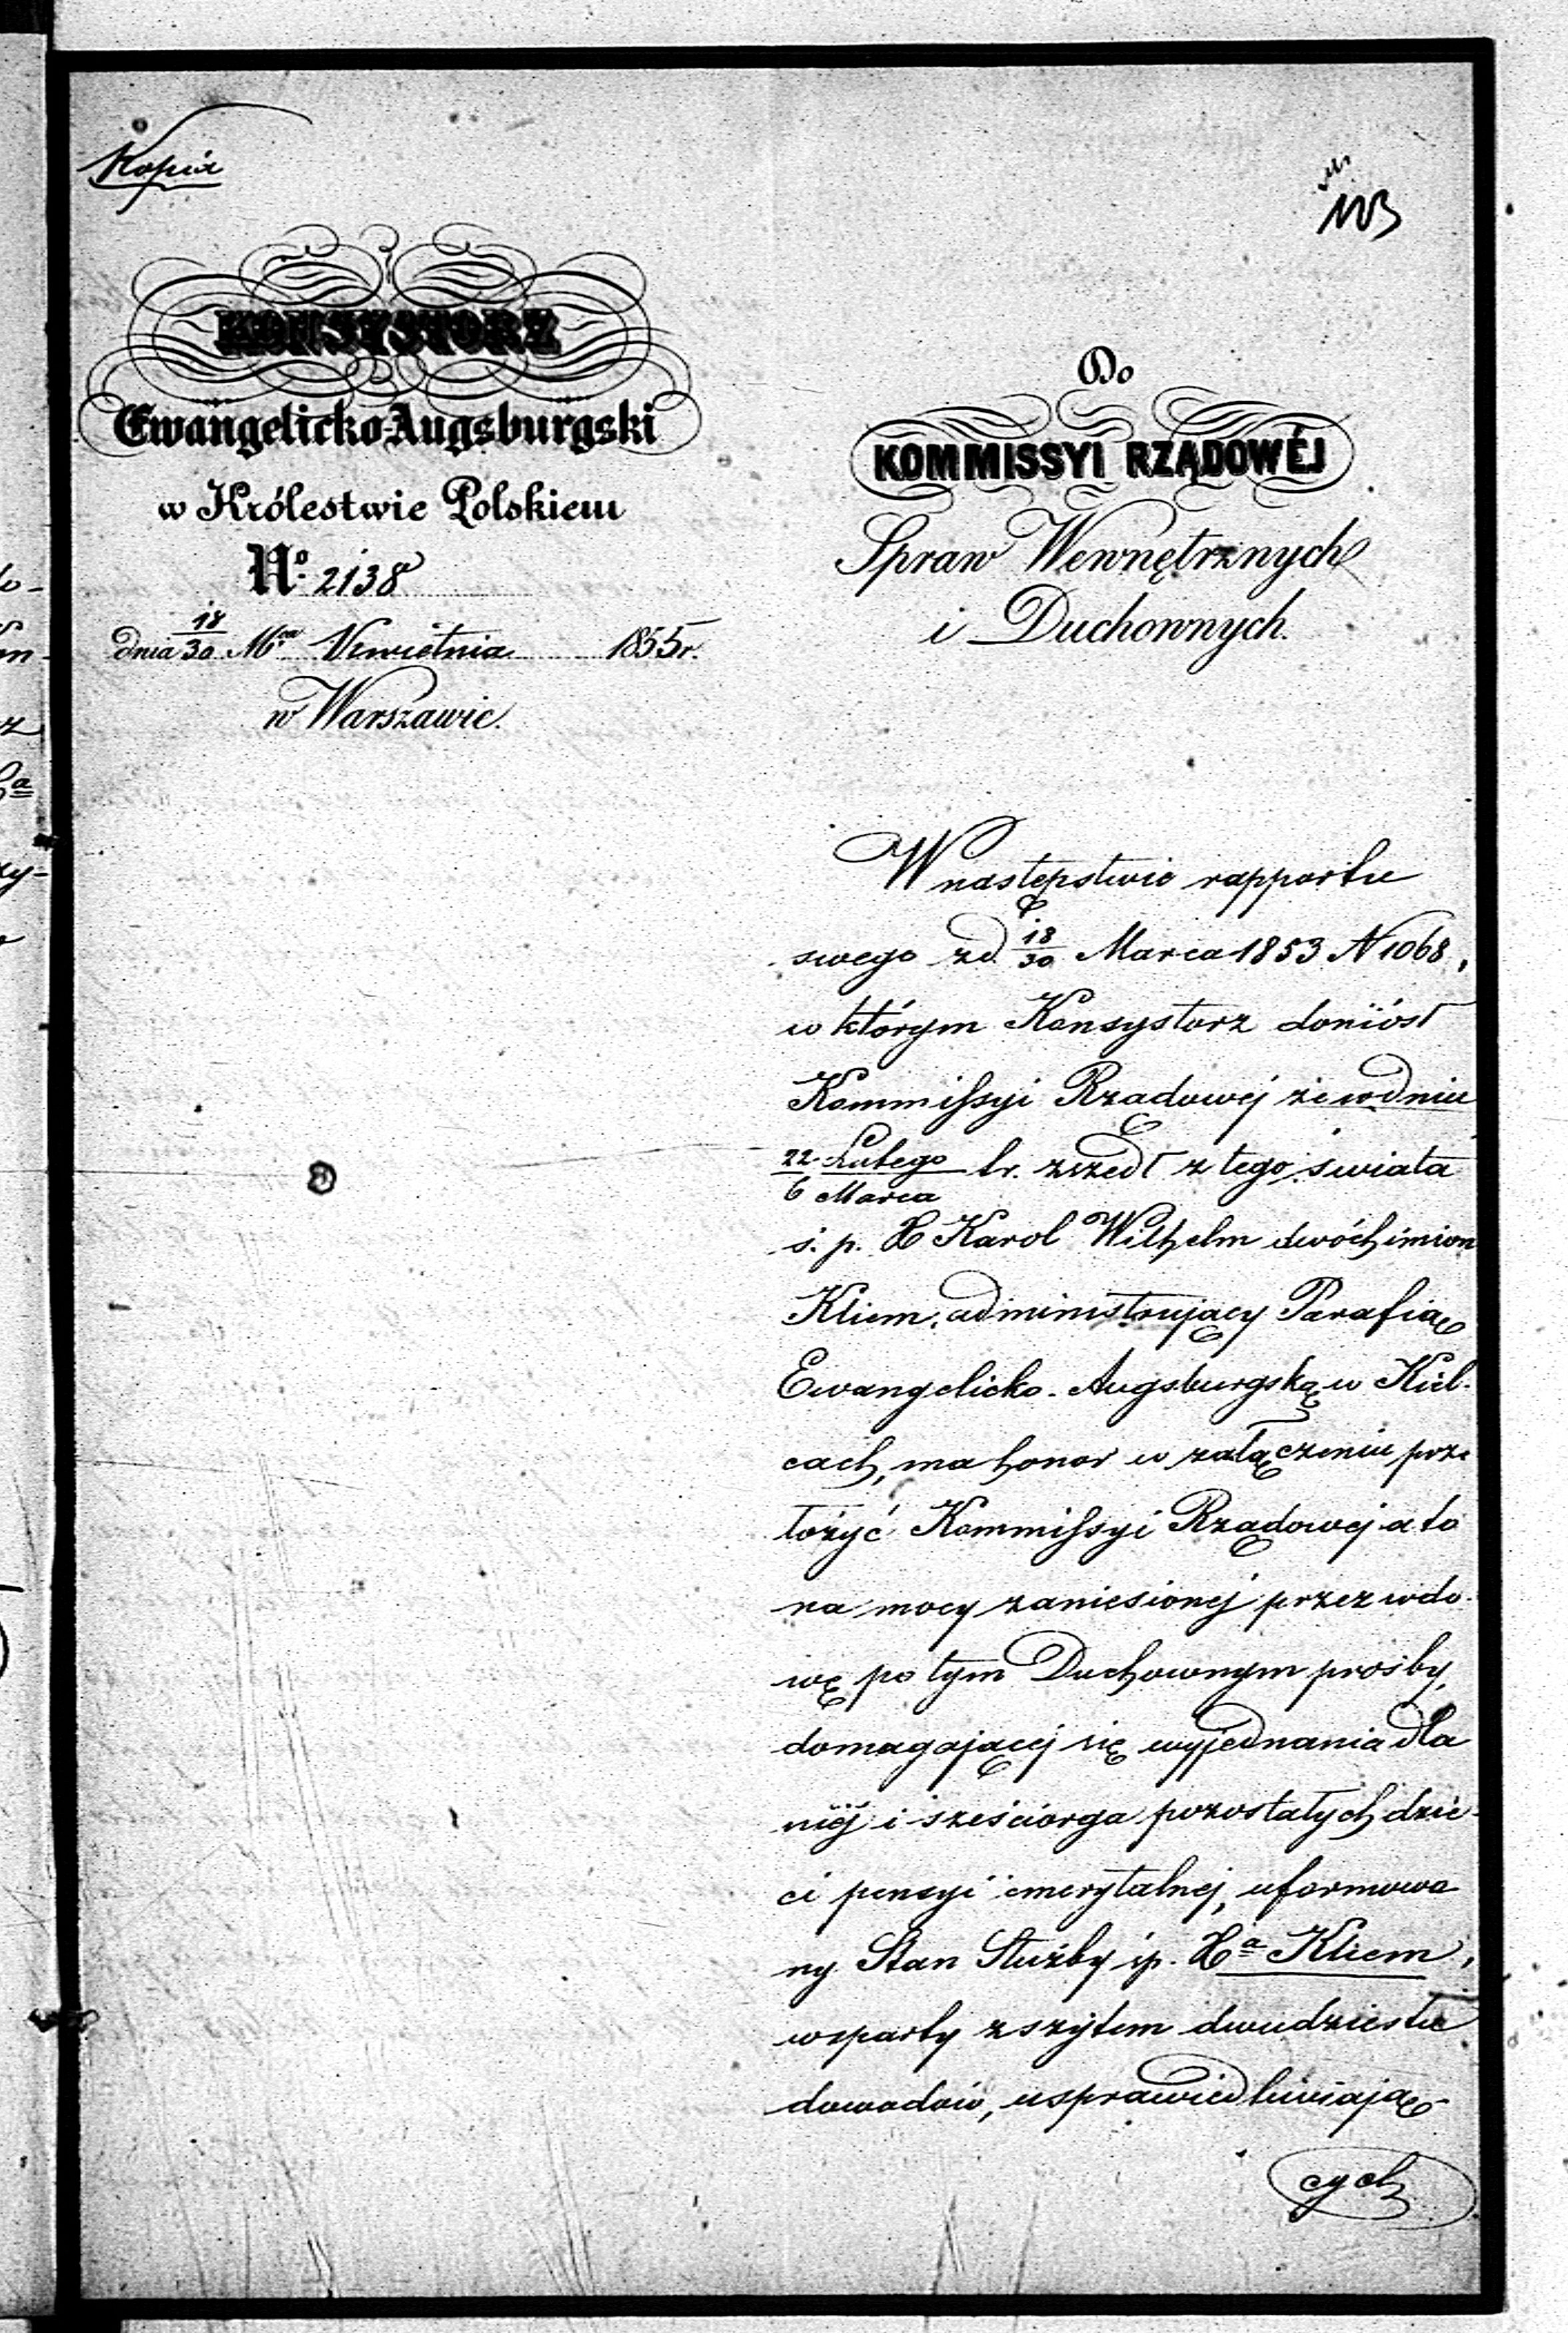 Kopia
103
KONSYSTORZ
Ewangelicko-Augsburgski
w Królestwie Polskiem
No. 2138
dnia 18/30 Mca Kwietnia 1855 r.
w Warszawie.
Do
KOMMISSYI RZĄDOWÉJ
Spraw Wewnętrznych
i Duchownych.
W następstwie rapportu
swego z d. 18/30 Marca 1853 N 1068,
w którym Konsystorz doniósł
Kommissyi Rządowéj że w dniu
22 Lutego/6 Marca b.r. zszedł z tego świata
ś. p. X Karol Wilhelm dwóch imion
Kliem, administrujący Parafią
Ewangelicko-Augsburgską w Kiel-
cach, ma honor w załączeniu prze
łożyć Kommissyi Rządowej a to
na mocy zaniesionéj przez wdo-
wę po tym Duchownym prośby,
domagającéj się wyjednania dla
niéj i sześciorga pozostałych dzie-
ci pensyi emerytalnéj, uformowa
ny Stan Służby śp. Xa Kliem,
wsparty zszytem dwudziestu
dowodów, usprawiedliwiają-
cych